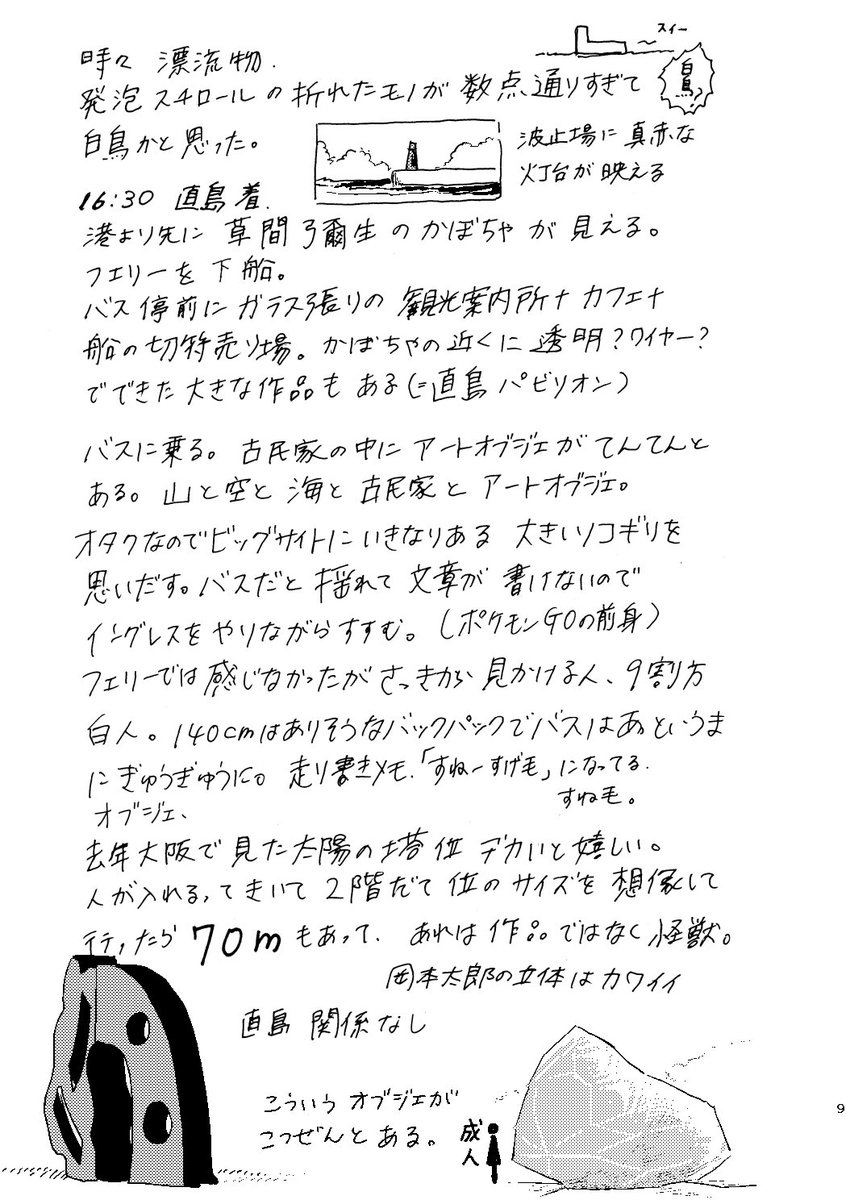 時々 漂流物.
スイー
発泡スチロールの折れたモノが 数点通りすぎて
白鳥?
白鳥かと思った。
波止場に真赤な
灯台が映える
16:30 直島着.
港より先に 草間彌生のかぼちゃが見える。
フェリーを下船。
バス停前にガラス張りの観光案内所+カフェ+
船の切符売り場。かぼちゃの近くに透明?ワイヤー?
でできた大きな作品もある(=直島パビリオン)
バスに乗る。古民家の中にアートオブジェがてんてんと
ある。山と空と海と古民家とアートオブジェ。
オタクなのでビッグサイトにいきなりある 大きいノコギリを
思いだす。バスだと揺れて文章が書けないので
イングレスをやりながらすすむ。(ポケモンGOの前身)
フェリーでは感じなかったがさっきから見かける人、9割方
白人。140cmはありそうなバックパックでバスはあっというま
にぎゅうぎゅうに。走り書きメモ.「すねーすげ毛」になってる.
すね毛。
オブジェ、
去年大阪で見た太陽の塔位デカいと嬉しい。
人が入れる,てきいて2階だて位のサイズを想像して
行ったら70mもあって. あれは作品ではなく怪獣。
岡本太郎の立体はカワイイ
直島関係なし
こういうオブジェが
こつぜんとある。
成人
9